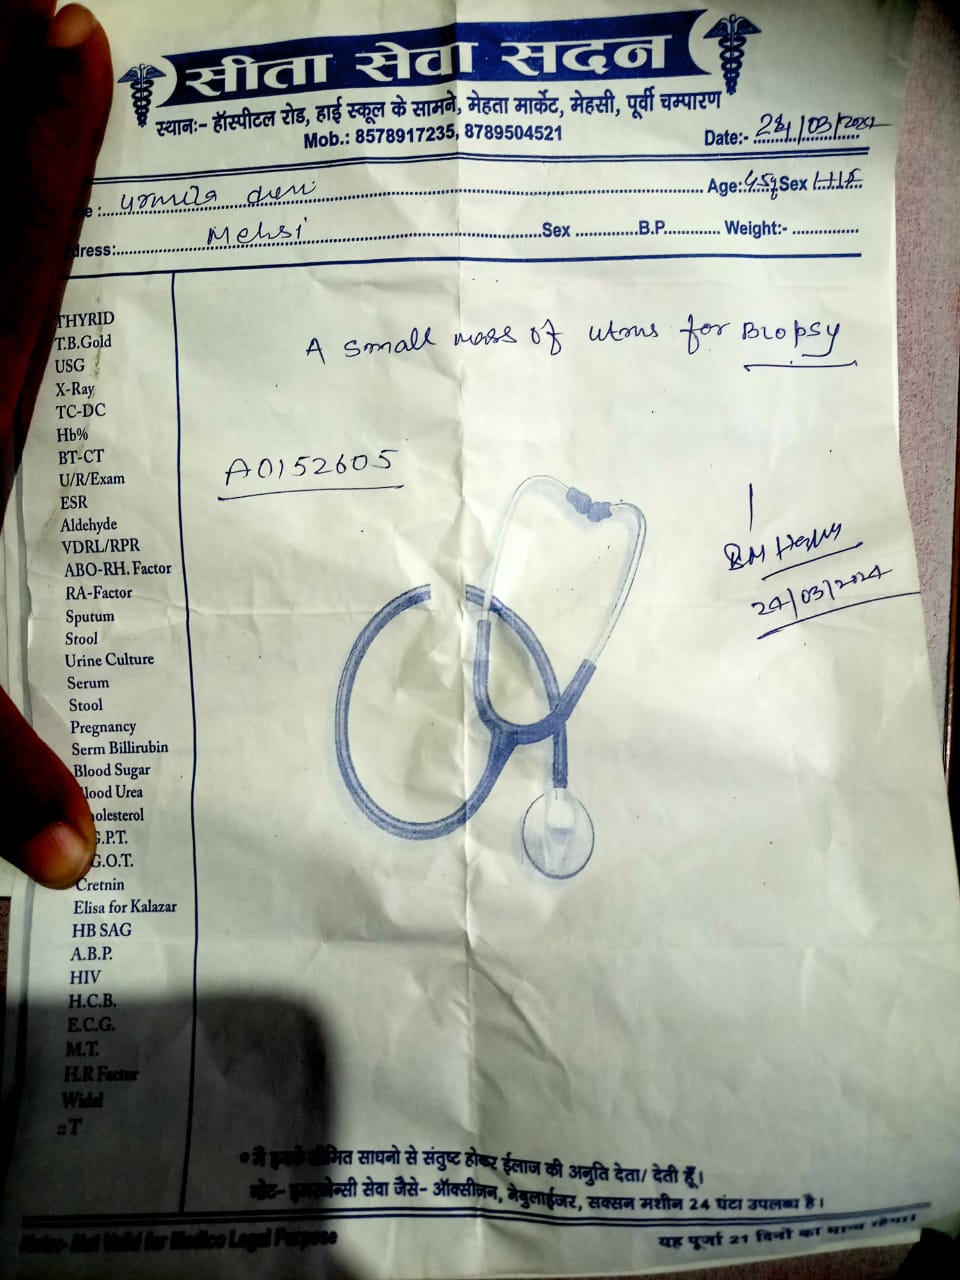 सीता सेवा सदन
स्थानः- हॉस्पीटल रोड, हाई स्कूल के सामने, मेहता मार्केट, मेहसी, पूर्वी चम्पारण
Mob.: 8578917235, 8789504521
Date:- 24/03/2024
Age: 45y Sex
Mehsi Sex B.P. Weight:-
THYRID
T.B.Gold
USG
X-Ray
TC-DC
Hb%
BT-CT
U/R/Exam
ESR
Aldehyde
VDRL/RPR
ABO-RH. Factor
RA-Factor
Sputum
Stool
Urine Culture
Serum
Stool
Pregnancy
Serm Billirubin
Blood Sugar
lood Urea
olesterol
G.P.T.
G.O.T.
Cretnin
Elisa for Kalazar
HB SAG
A.B.P.
HIV
H.C.B.
E.C.G.
M.T.
H.R Factor
Widal
A small mass of utrus for Biopsy
A0152605
24/03/2024
मै इनके सीमित साधनो से संतुष्ट होकर ईलाज की अनुति देता/ देती हूँ।
नोट- इमरजेन्सी सेवा जैसे- ऑक्सीजन, नेबुलाईजर, सक्सन मशीन 24 घंटा उपलब्ध है।
Note:- Not Valid for Medico Legal Purpose
यह पूर्जा 21 दिनों का मान्य रहेगा।